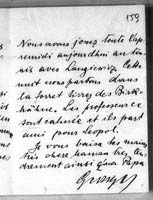 159
Nous avons joué toute l'ap-
remidi aujourdhui au ten-
nis avec Langiewicz. Cette
nuit nous partons dans
la forret tirer des Birk-
hähne. Les professeurs
sont et ils part
aussi pour Leopol.
Je vous baise les mains
très chère maman, ten-
drement ainsi qu'à Papa